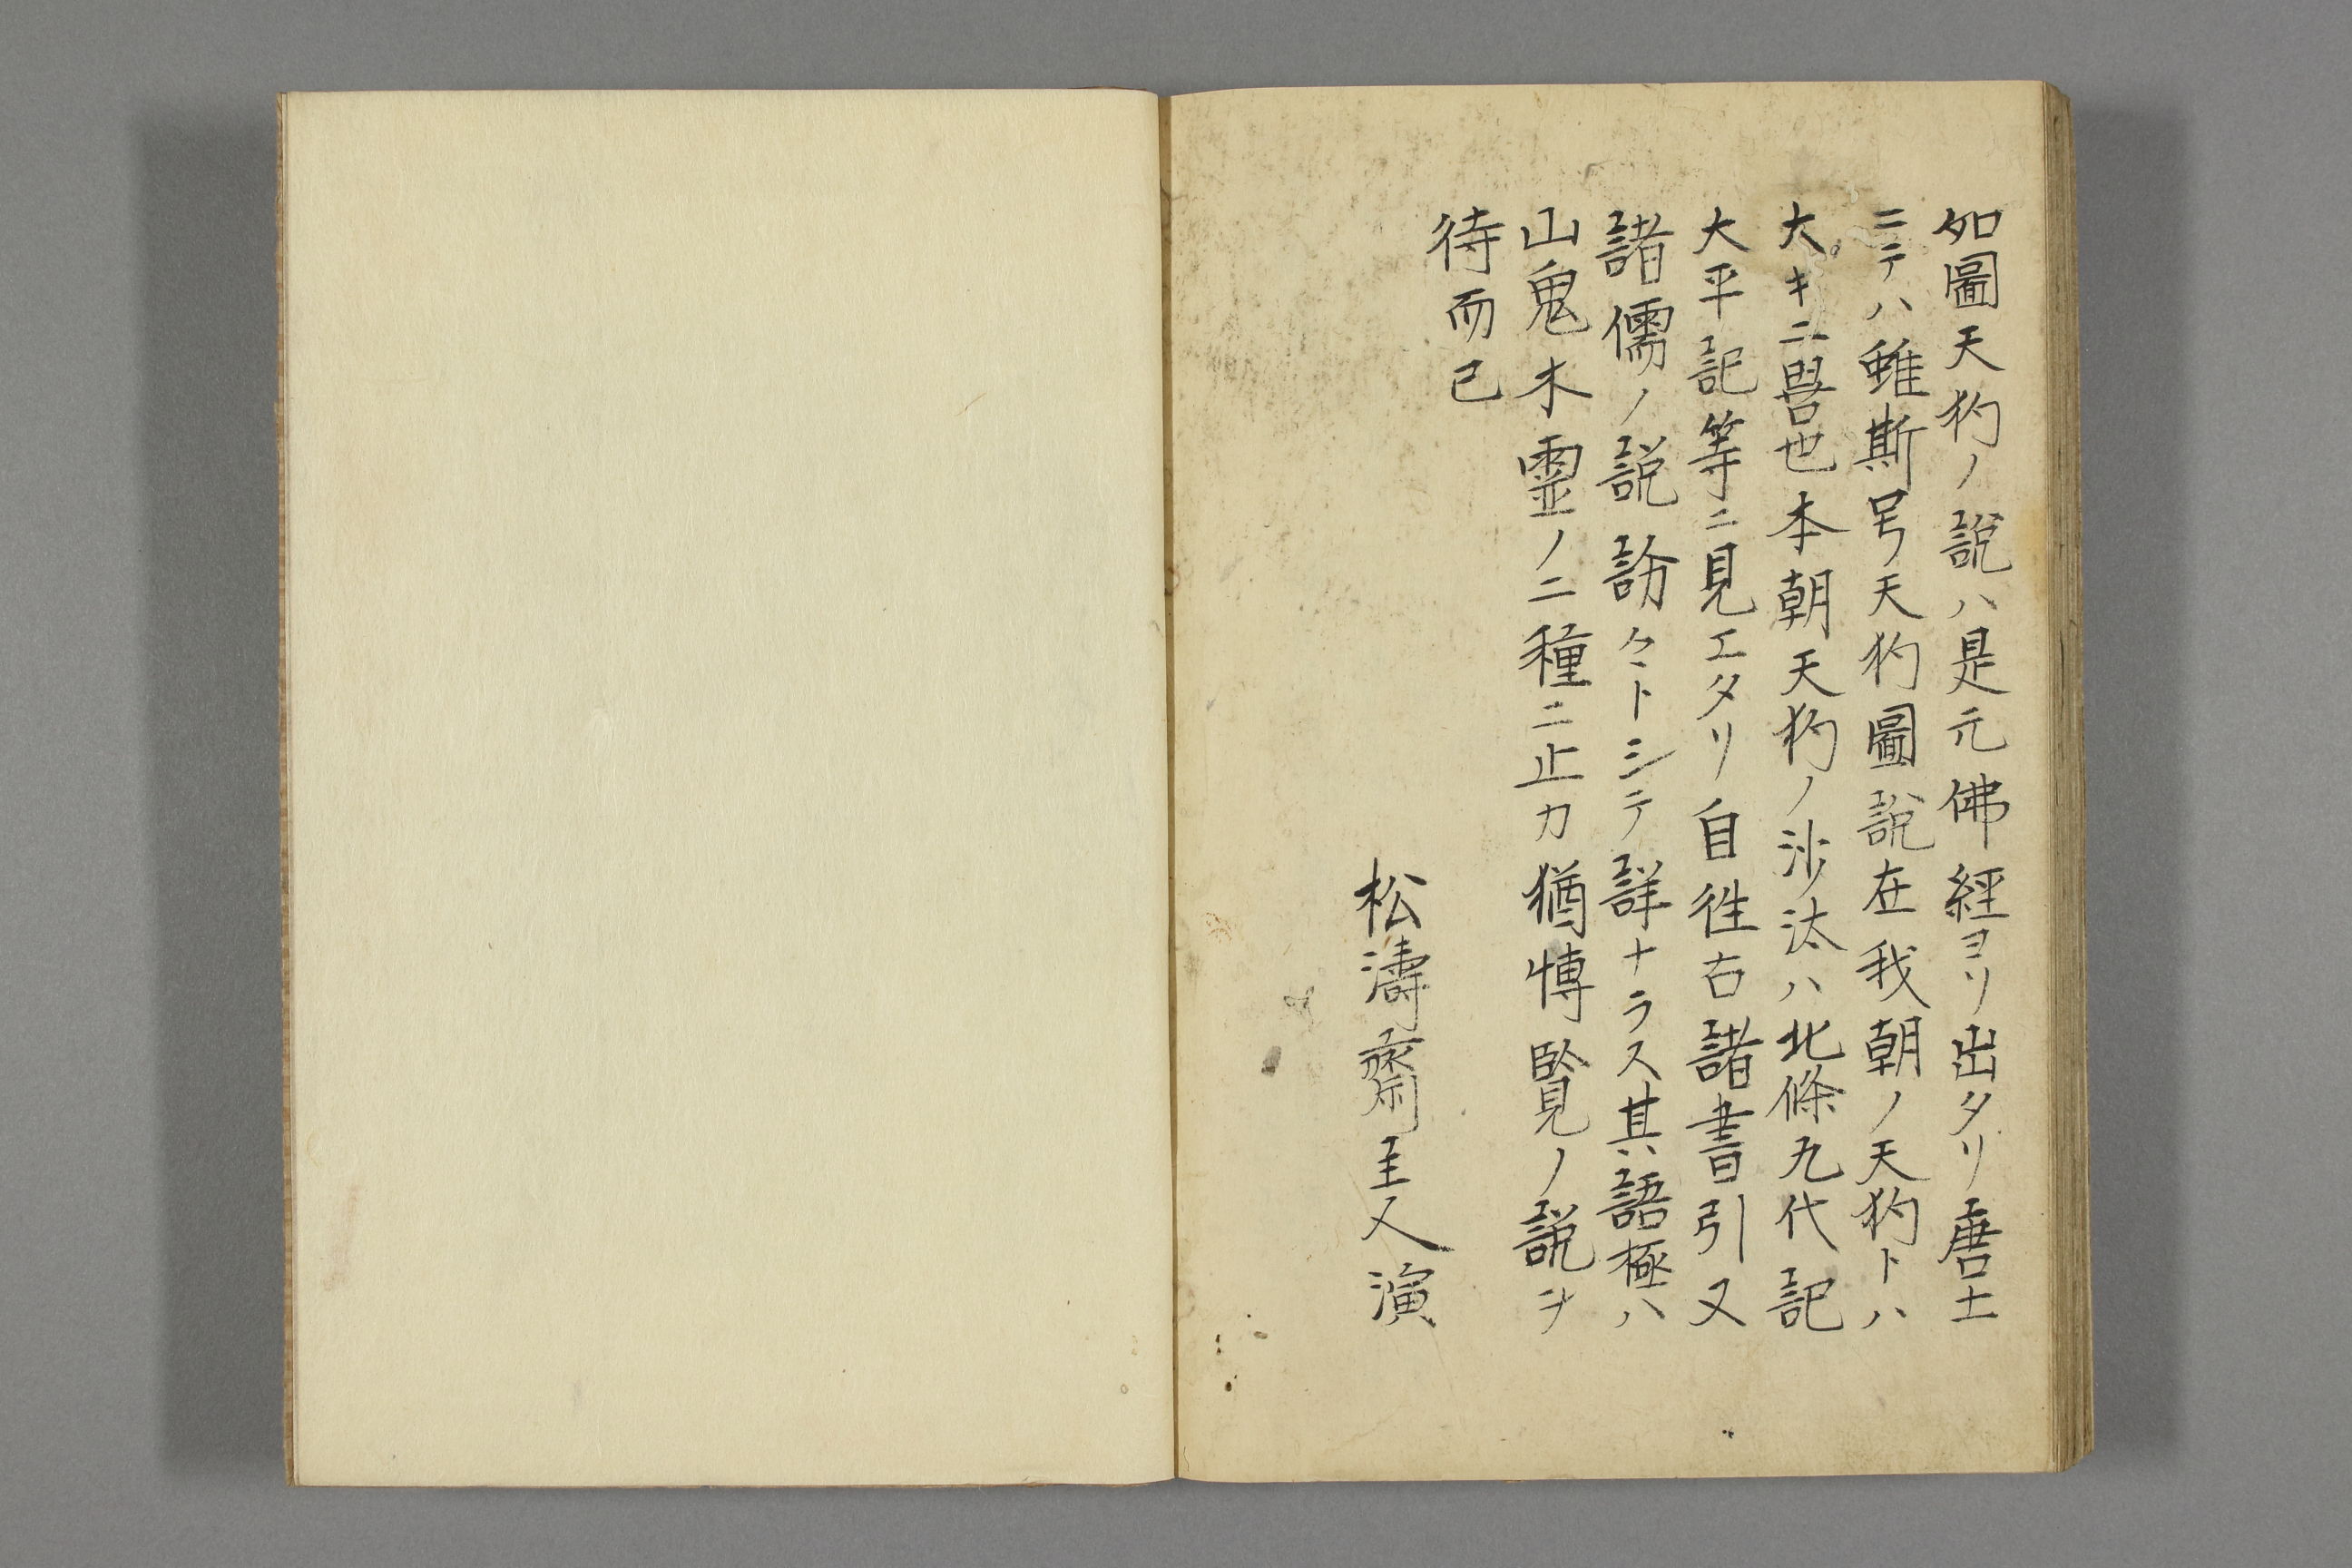 如圖天狗ノ説ハ是元佛経ヨリ出タリ唐土
ニテハ雖斯号天狗圖説在我朝ノ天狗トハ
大キニ也本朝天狗ノ沙汰ハ北條九代記
大平記等ニ見エタリ自徃古諸書引又
諸儒ノ説訜々トシテ詳ナラス其語極ハ
山鬼木霊ノ二種ニ止カ猶博覧ノ説ヲ
待而已
松濤齋主人演